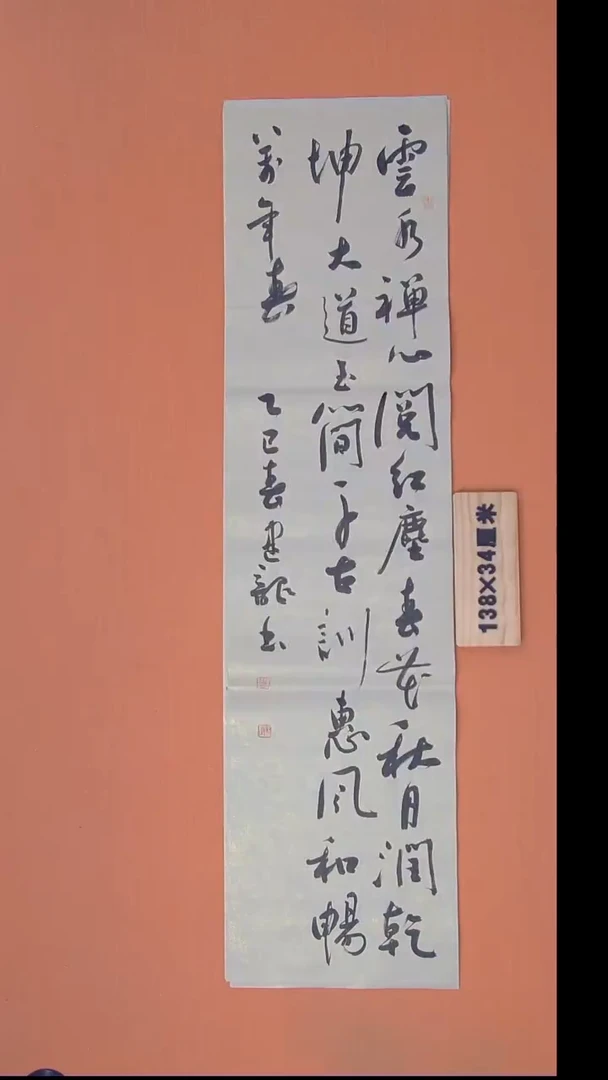 雲水禪心閱紅塵春花秋月潤乾
坤大道玉簡千古訓惠風和暢
萬年春
乙巳春建龍書
138×34厘米